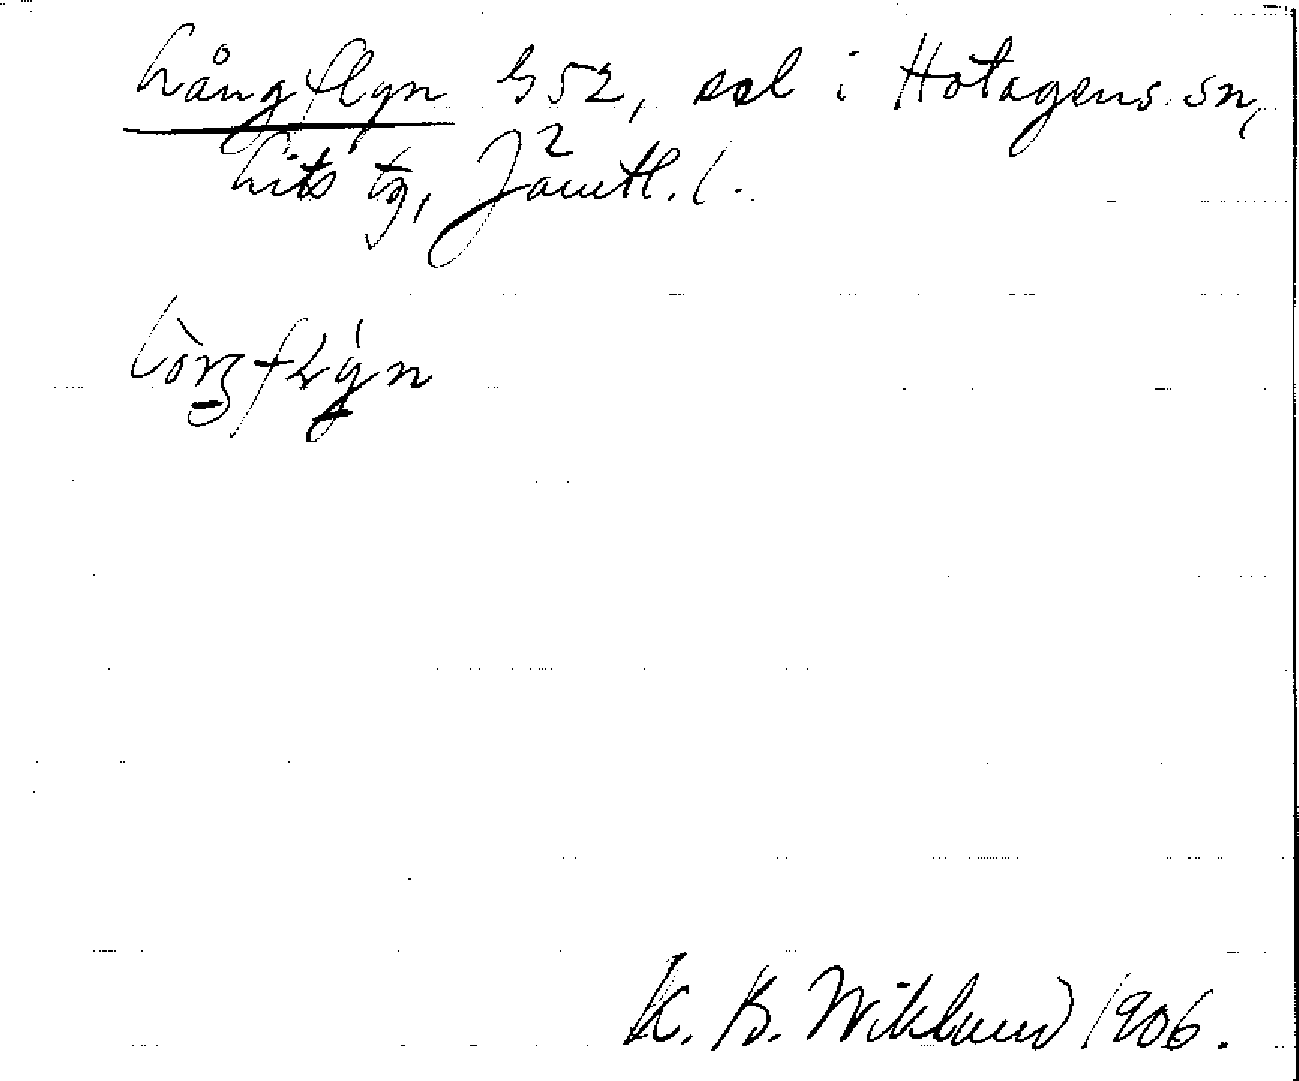 Långflyn h 52, sel i Hotagens sn,
Lits tg, Jämtl. l.
K. B. Wiklund 1906.